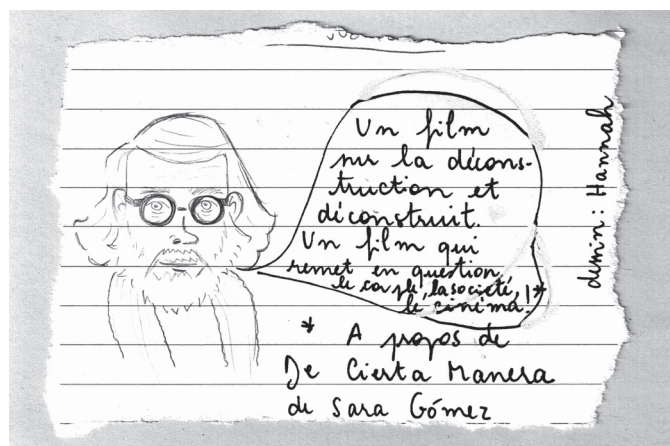 Un film
sur la décons-
truction et
déconstruit.
Un film qui
remet en question
le couple, la société,
le cinéma!*
* A propos de
De Cierta Manera
de Sara Gómez
dessin : Hannah